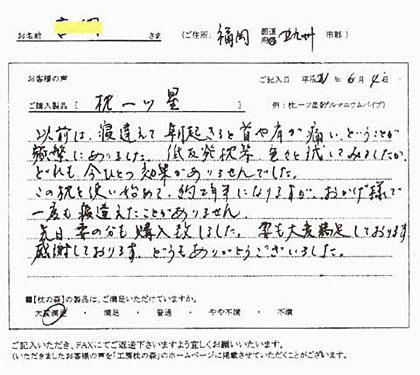 お名前 さま (ご住所: 福岡 都道府県 北九州 市郡)
お客様の声 ご記入日 平成21年6月4日
ご購入製品 [ 枕一ツ星 ] (例:枕一ツ星ゲルマニウムパイプ)
以前は、寝違えて朝起きると首や肩が痛いということが
頻繁にありました。低反発枕等 色々と試してみましたが、
どれも、今ひとつ効果がありませんでした。
この枕を使い始めて、約2年半になりますが、おかげ様で
一度も寝違えたことがありません。
先日、妻の分も購入致しました。妻も大変満足しております。
感謝しております。どうもありがとうございました。
■【枕の森】の製品は、ご満足いただけていますか。
大変満足 ・ 満足 ・ 普通 ・ やや不満 ・ 不満
ご記入いただき、FAXにてご返送下さいますよう宜しくお願いいたします。
(いただきましたお客様の声を「工房枕の森」のホームページに掲載させていただくことがございます。